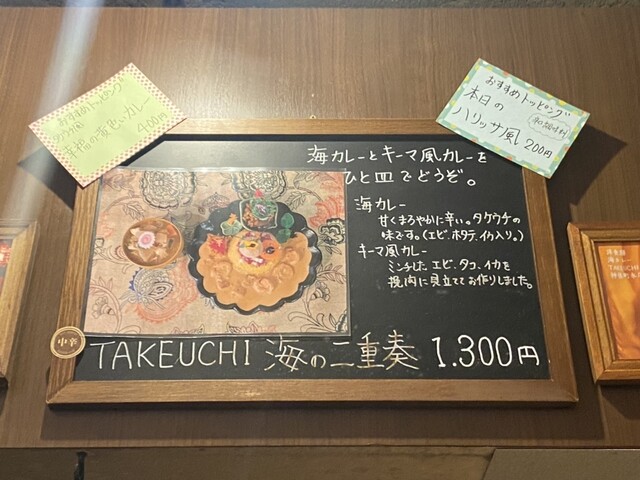 おすすめトッピング
幸福の黄色いカレー
400円
おすすめトッピング
本日の
和調味料
ハリッサ風
200円
海カレーとキーマ風カレーを
ひと皿でどうぞ。
海カレー
甘くまろやかに辛い。タケウチの
味です。(エビ、ホタテ、イカ入り。)
キーマ風カレー
ミンチした エビ、タコ、イカを
挽肉に見立ててお作りしました。
中辛
TAKEUCHI 海の二重奏 1.300円
TAKEUCHI